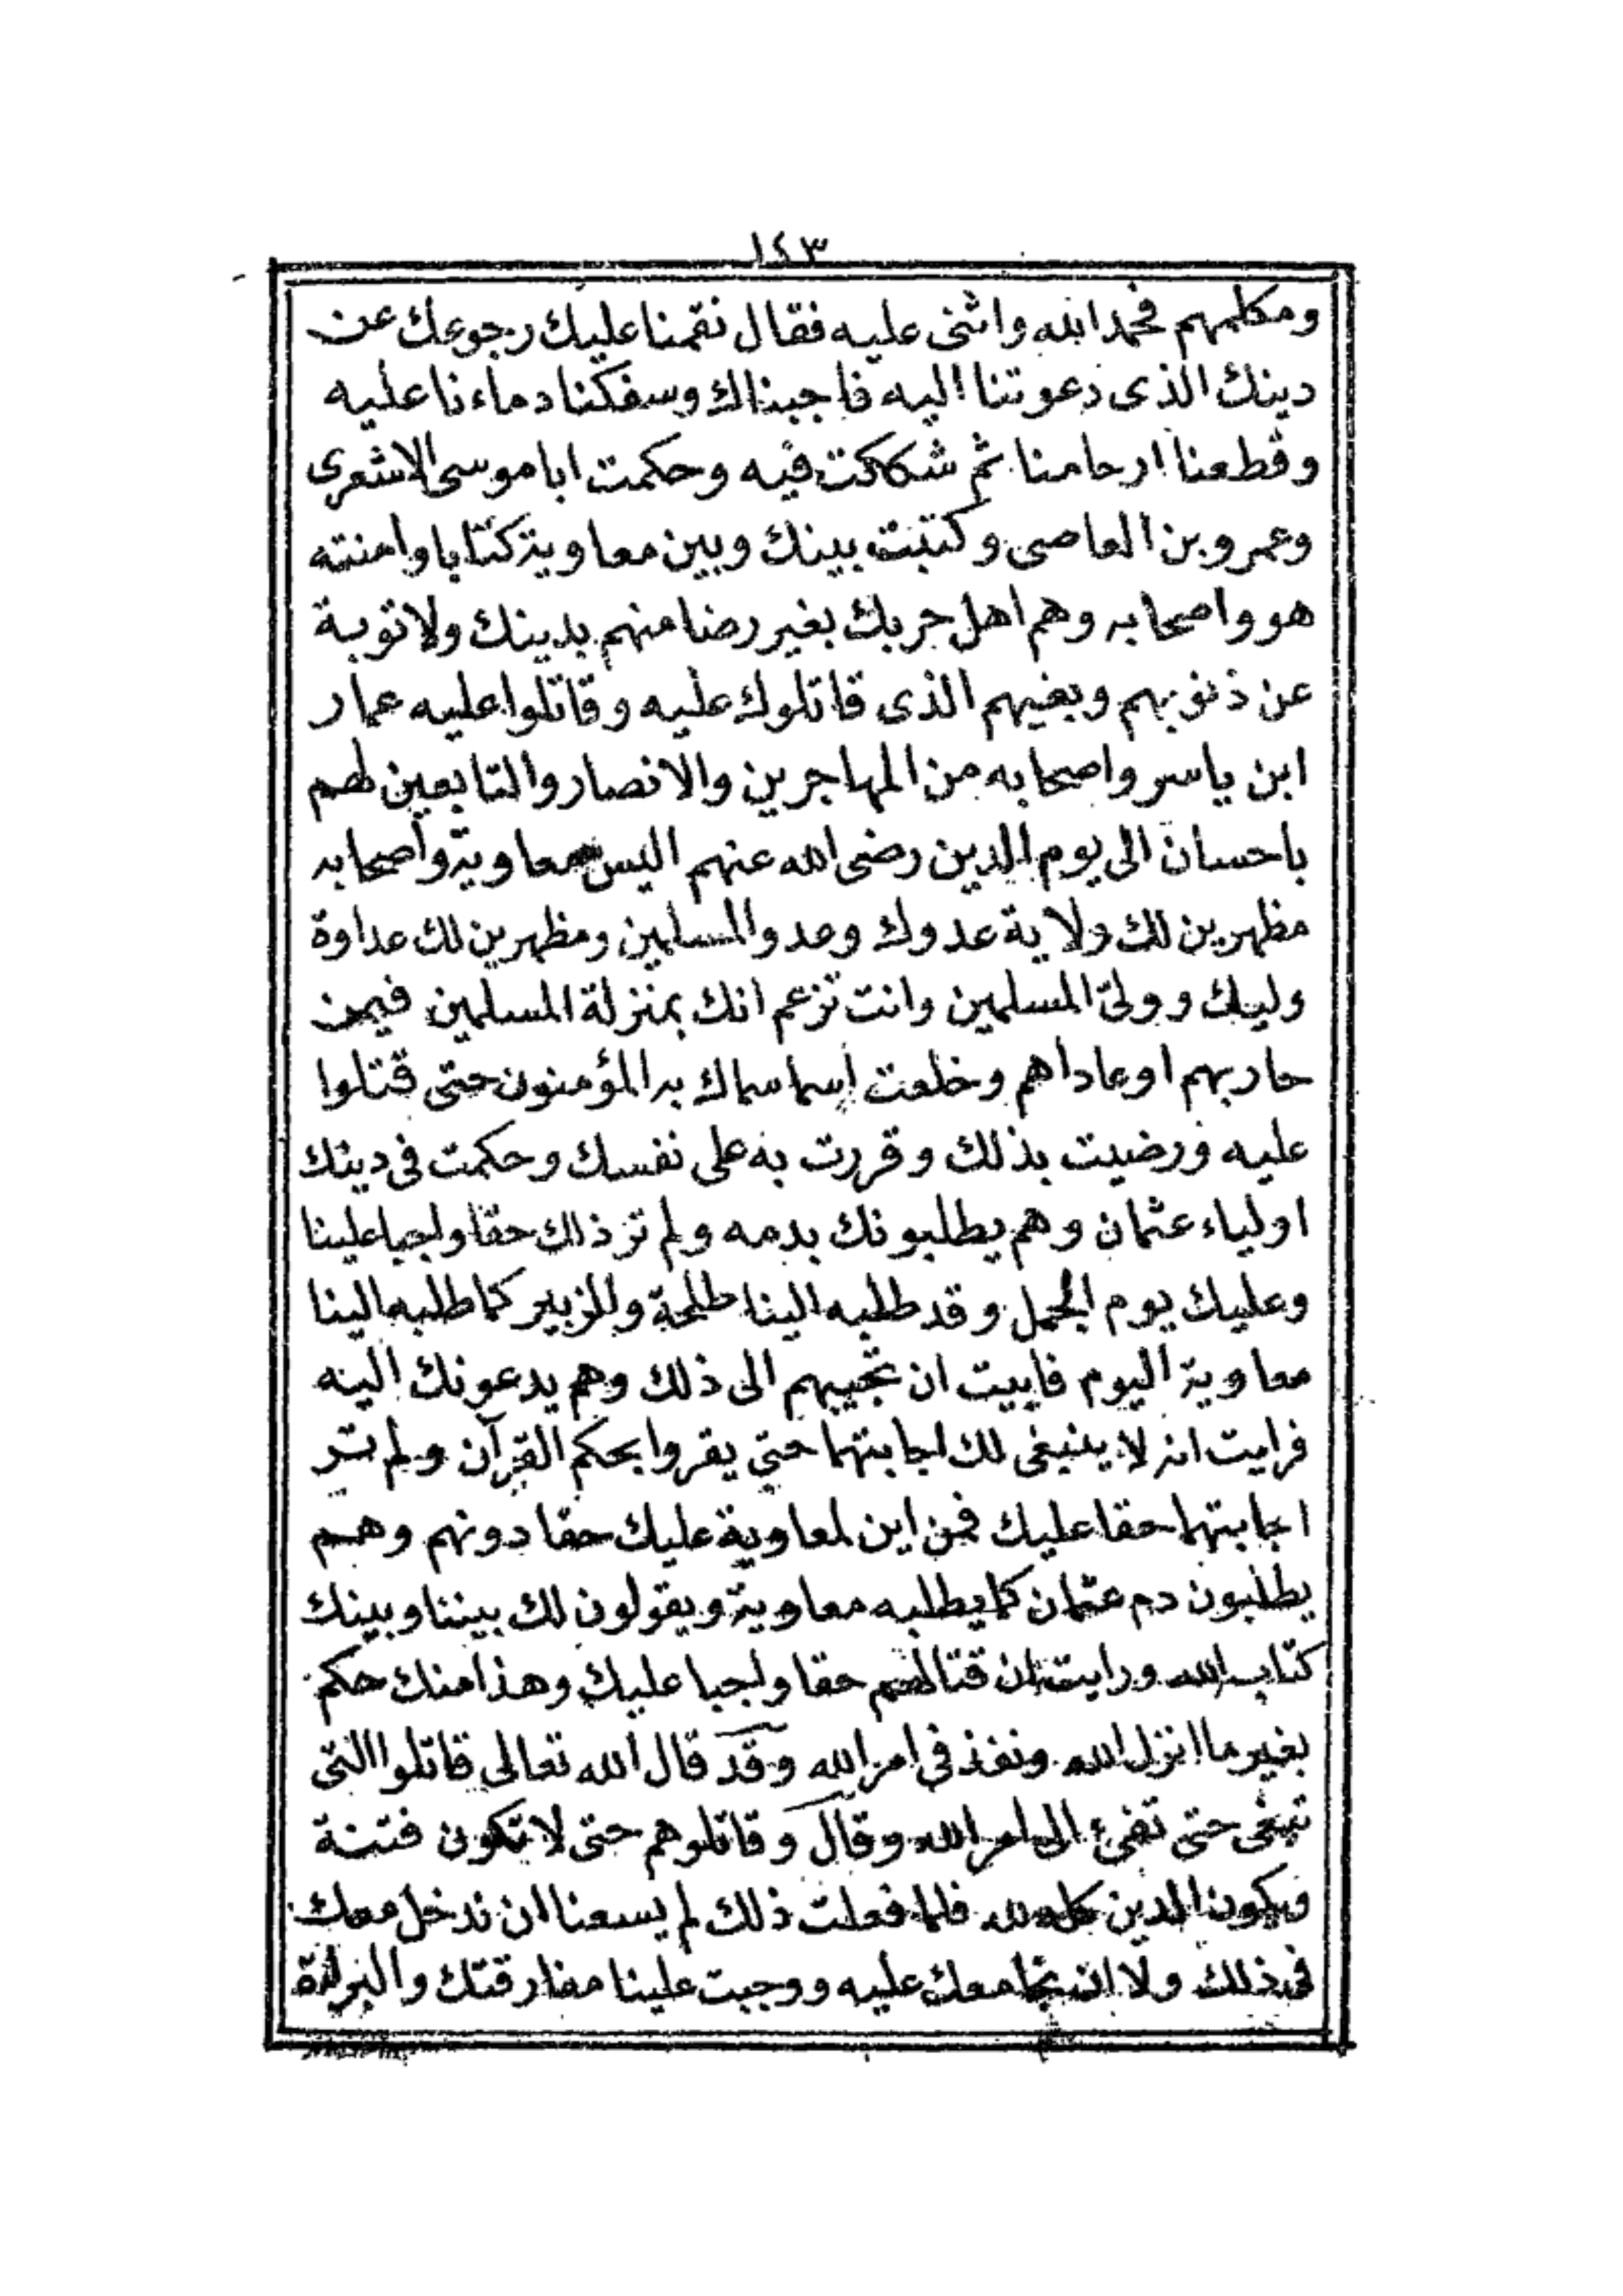 ١٤٣
ومكلمهم فحمد الله واثنى عليه فقال نقمنا عليك رجوعك عن
دينك الذى دعوتنا اليه فاجبناك وسفكنا دماءنا عليه
وقطعنا ارحامنا ثم شككت فيه وحكمت ابا موسى الاشعرى
وعمرو بن العاصى وكتبت بينك وبين معاوية كتابا وامنته
هو واصحابه وهم اهل حربك بغير رضا منهم بدينك ولا توبة
عن ذنوبهم وبغيهم الذى قاتلوك عليه وقاتلوا عليه عمار
ابن ياسر واصحابه من المهاجرين والانصار والتابعين لهم
باحسان الى يوم الدين رضى الله عنهم اليس معاوية واصحابه
مظهرين لك ولاية عدوك وعدو المسلمين ومظهرين لك عداوة
وليك وولىّ المسلمين وانت تزعم انك بمنزلة المسلمين فيمن
حاربهم او عاداهم وخلعت إسما سماك به المؤمنون حتى قتلوا
عليه ورضيت بذلك وقررت به على نفسك وحكمت فى دينك
اولياء عثمان وهم يطلبونك بدمه ولم تر ذلك حقا واجبا علينا
وعليك يوم الجمل وقد طلبه الينا طلحة والزبير كما طلبه الينا
معاوية اليوم فابيت ان تجيبهم الى ذلك وهم يدعونك الينه
فرايت انه لا ينبغى لك اجابتهما حتى يقروا بحكم القرآن ولم تر
اجابتهما حقا عليك فمن اين لمعاوية عليك حقا دونهم وهم
يطلبون دم عثمان كما يطلبه معاوية ويقولون لك بيننا وبينك
كتاب الله ورايت ان قتالهم حقا واجبا عليك وهذا منك حكم
بغير ما انزل الله ونفذ فى امر الله وقد قال الله تعالى قاتلوا التى
تبغى حتى تفىء الى امر الله وقال وقاتلوهم حتى لا تكون فتنة
ويكون الدين كله لله فلما فعلت ذلك لم يسعنا ان ندخل معك
فى ذلك ولا ان نجامعك عليه ووجبت علينا مفارقتك والبراءة